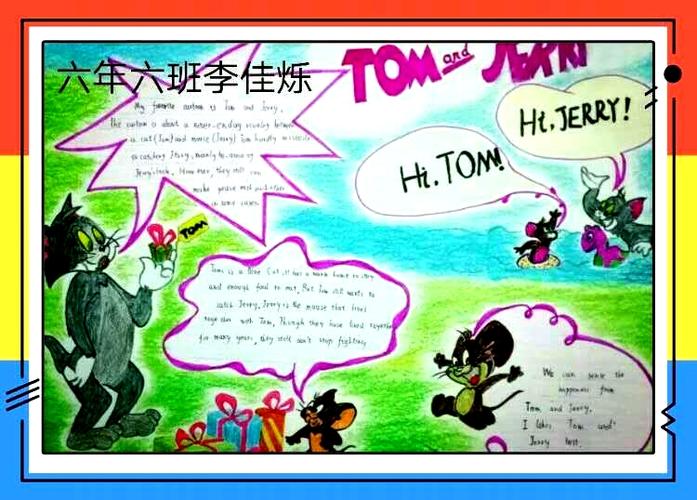 六年六班李佳烁
TOM and JERRY
My favorite cartoon is Tom and Jerry.
The cartoon is about a never-ending rivalry between
a cat (Tom) and mouse (Jerry) Tom hardly succeeds
in catching Jerry, mainly because of
Jerry's luck. However, they still can
make peace and
in some cases.
Hi, JERRY!
Hi, TOM!
TOM
Tom is a blue Cat, it has a warm home to stay
and enough food to eat, But Tom still wants to
catch Jerry. Jerry is the mouse that lives
together with Tom, Though they have lived together
for many years, they still can't stop fighting.
We can sense the
happiness from
Tom and Jerry,
I likes Tom and
Jerry best.